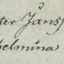 ter Jansz
helmina